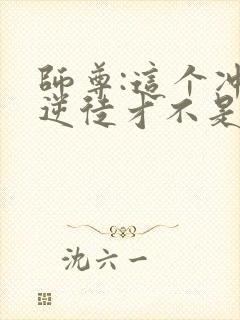 師尊:這个冲
逆徒才不是
沈六一